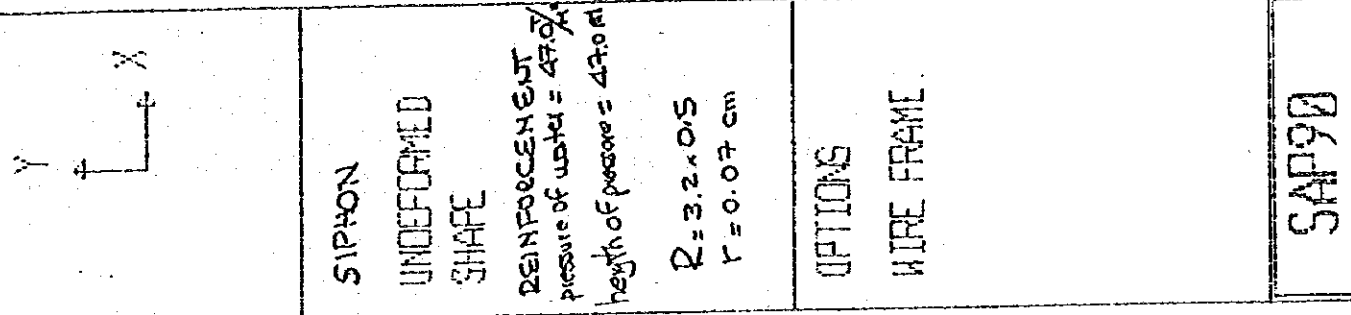 Y
X
SIPHON
UNDEFORMED
SHAPE
REINFORCEMENT
pressure of water = 47.0
height of pressure = 47.0 m
R = 3.2 x 0.5
r = 0.07 cm
OPTIONS
WIRE FRAME
SAP90